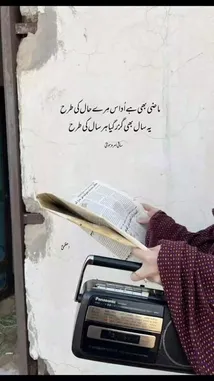 ماضی بھی ہے اُداس مرے حال کی طرح
یہ سال بھی گزر گیا ہر سال کی طرح
Panasonic